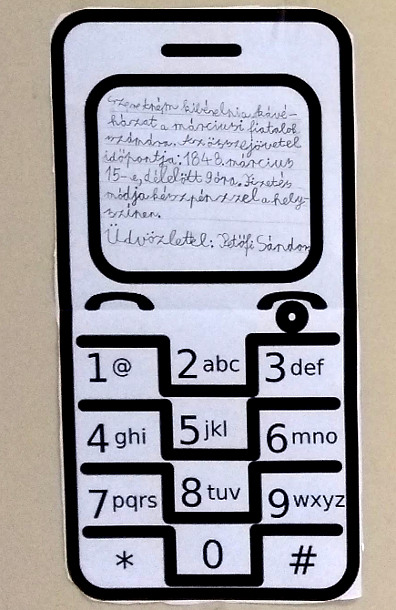 Szeretném kibérelni a kávé-
házat a márciusi fiatalok
számára. Az összejövetel
időpontja: 1848. március
15-e, délelőtt 9 óra. Fizetés
módja készpénzzel a hely-
színen.
Üdvözlettel: Petőfi Sándor
1@ 2abc 3def
4ghi 5jkl 6mno
7pqrs 8tuv 9wxyz
* 0 #